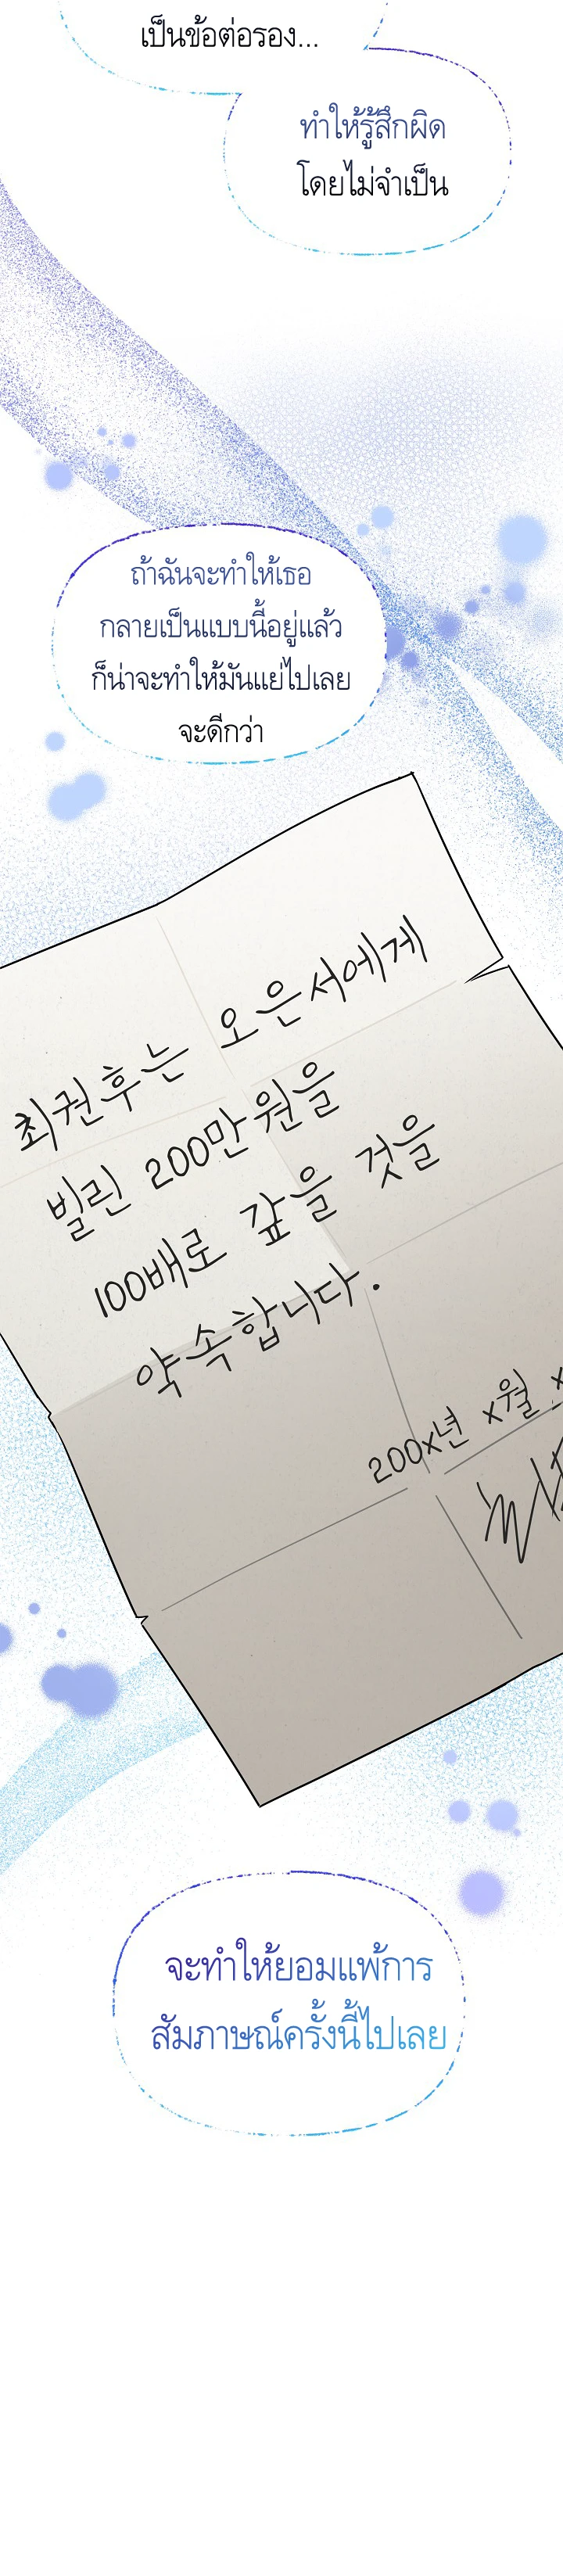 เป็นข้อต่อรอง...
ทำให้รู้สึกผิด
โดยไม่จำเป็น
ถ้าฉันจะทำให้เธอ
กลายเป็นแบบนี้อยู่แล้ว
ก็น่าจะทำให้มันแย่ไปเลย
จะดีกว่า
최권후는 오은서에게
빌린 200만원을
100배로 갚을 것을
약속합니다.
200x년 x월 x
จะทำให้ยอมแพ้การ
สัมภาษณ์ครั้งนี้ไปเลย